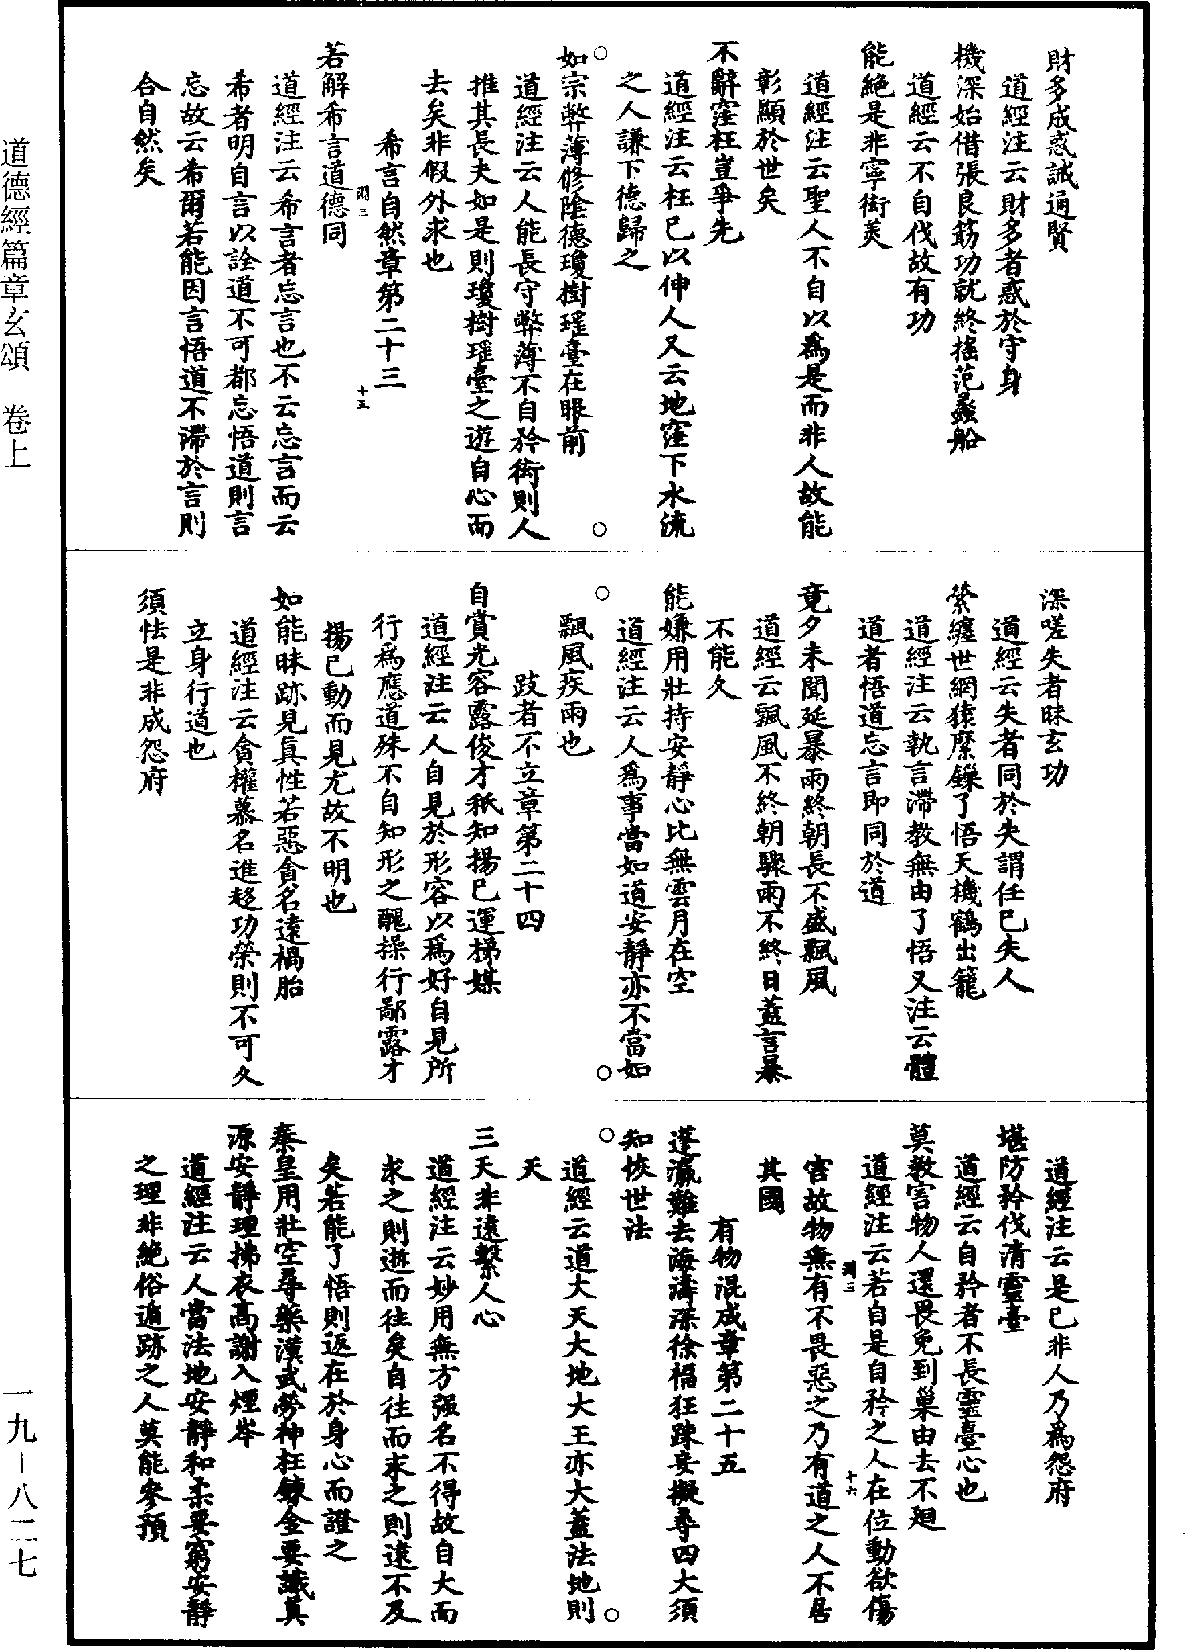 財多成惑誠通賢
道經注云財多者惑於守身
機深始借張良筯功就終搖范蠡船
道經云不自伐故有功
能絶是非寧衒美
道經注云聖人不自以爲是而非人故能
彰顯於世矣
不辭窪枉豈爭先
道經注云枉已以伸人又云地窪下水流
之人謙下德歸之
如宗弊薄修陰德瓊樹瑤臺在眼前
道經注云人能長守弊薄不自矜衒則人
推其長夫如是則瓊樹瑤臺之遊自心而
去矣非假外求也
希言自然章第二十三
十五
若解希言道德同
道經注云希言者忘言也不云忘言而云
希者明自言以詮道不可都忘悟道則言
忘故云希爾若能因言悟道不滯於言則
合自然矣
深嗟失者昧玄功
道經云失者同於失謂任已失人
縈纏世網猿縻鏁了悟天機鶴出籠
道經注云執言滯教無由了悟又注云體
道者悟道忘言即同於道
竟夕未聞延暴雨終朝長不盛飄風
道經云飄風不終朝驟雨不終日蓋言暴
不能久
能嫌用壯持安靜心比無雲月在空
道經注云人爲事當如道安靜亦不當如
飄風疾雨也
跂者不立章第二十四
自賞光容露俊才秖知揚已運梯媒
道經注云人自見於形容以爲好自見所
行爲應道殊不自知形之醜操行鄙露才
揚已動而見尤故不明也
如能昧跡見眞性若惡貪名遠禍胎
道經注云貪權慕名進趍功榮則不可久
立身行道也
須怯是非成怨府
道經注云是已非人乃爲怨府
堪防矜伐清靈臺
道經云自矜者不長靈臺心也
莫教害物人還畏免到巢由去不廻
道經注云若自是自矜之人在位動欲傷
害故物無有不畏惡之乃有道之人不居
其國
十六
有物混成章第二十五
蓬瀛難去海濤深徐福狂踈妄擬尋四大須
知恢世法
道經云道大天大地大王亦大蓋法地則
天
三天非遠繫人心
道經注云妙用無方强名不得故自大而
求之則逝而往矣自往而求之則遠不及
矣若能了悟則返在於身心而證之
秦皇用壯空尋藥漢武勞神枉鍊金要識眞
源安靜理拂衣高謝入煙岑
道經注云人當法地安靜和柔要窮安靜
之理非絶俗遁跡之人莫能參預
道德經篇章玄頌　卷上
一九－八二七